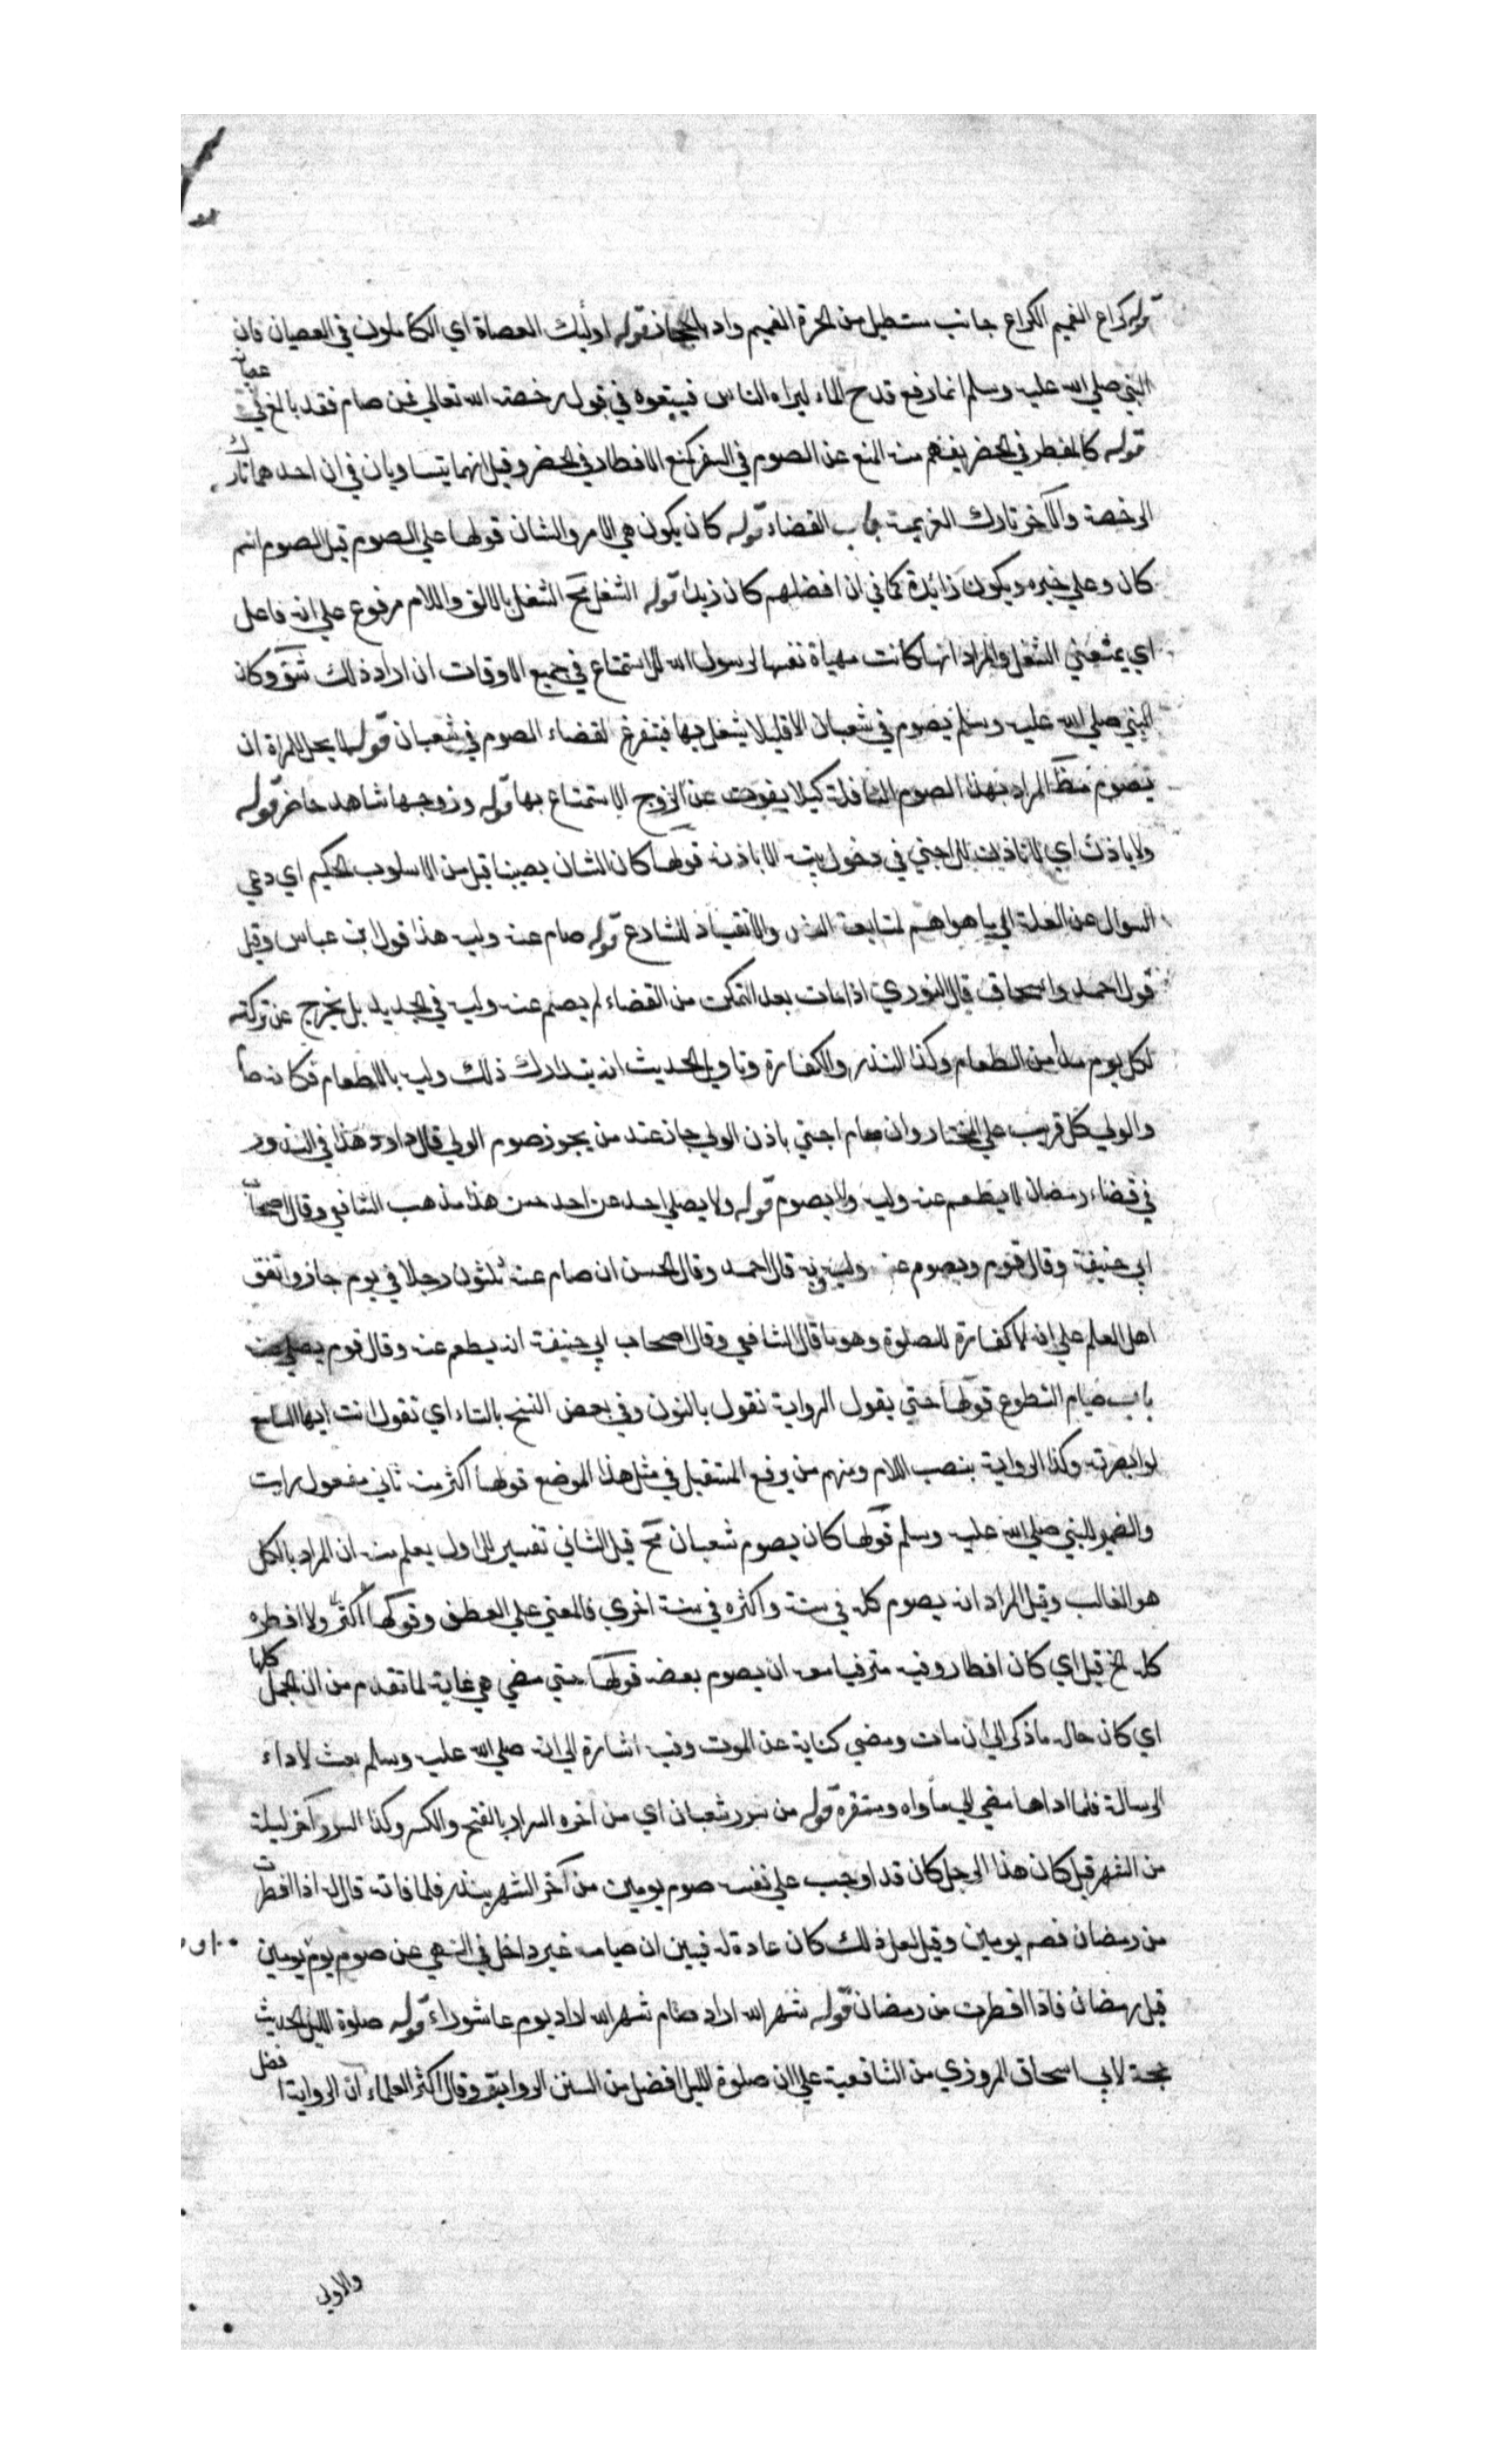 قوله كراع الغميم الكراع جانب مستطيل من الحرة الغميم واد بالحجاز قوله اوليك العصاة اي الكاملون في العصيان فان
النبي صلي الله عليه وسلم انما رفع قدح الماء ليراه الناس فيتبعوه في قبول رخصة الله تعالي فمن صام فقد بالغ في عصيانه
قوله كالمفطر في الحضر يفهم منه المنع عن الصوم في السفر كمنع الافطار في الحضر وقيل انهما يتساويان في ان احدهما تارك
الرخصة والآخر تارك العزيمة باب القضاء قوله كان يكون هي الامر والشان قولها علي الصوم قيل الصوم اسم
كان وعلي خبره ويكون زائدة كما في ان افضلهم كان زيدا قوله الشغل مح الشغل بالالف واللام مرفوع علي انه فاعل
اي يمنعني الشغل والمراد انها كانت مهياة نفسها لرسول الله للاستمتاع في جميع الاوقات ان اراد ذلك وكان
النبي صلي الله عليه وسلم يصوم في شعبان الا قليلا يشغل فيها فيتفرغ لقضاء الصوم في شعبان قوله لا يحل للمراة ان
تصوم مظ المراد بهذا الصوم النافلة كيلا يفوت عن الزوج الاستمتاع بها قوله وزوجها شاهد حاضر قوله
ولا ياذن اي لا تاذن للاجنبي في دخول بيته الا باذنه قولها كان الشان يصيبنا قيل من الاسلوب الحكيم اي دعي
السوال عن العلة الي ما هو اهم لمتابعة النص والانقياد للشارع قوله صام عنه وليه هذا قول ابن عباس وقيل
قول احمد واسحاق قال النوري اذا مات بعد التمكن من القضاء لم يصم عنه وليه في الجديد بل يخرج عن تركته
لكل يوم مدا من الطعام وكذا النذر والكفارة وتاويل الحديث انه يتدارك ذلك وليه بالاطعام فكانه صام
والولي كل قريب علي المختار وان صام اجنبي باذن الولي جاز عند من يجوز صوم الولي قال داود هذا في النذور
في قضاء رمضان لا يطعم عنه وليه ولا يصوم قوله ولا يصلي احد عن احد حسن هذا مذهب الشافعي وقال اصحاب
ابي حنيفة وقال قوم ويصوم عنه وليه وبه قال احمد وقال الحسن ان صام عنه ثلثون رجلا في يوم جاز واتفق
اهل العلم علي انه لا كفارة للصلوة وهو ما قال الشافعي وقال اصحاب ابي حنيفة انه يطعم عنه وقال قوم يصلي عنه
باب صيام التطوع قولها حتي يقول الرواية نقول بالنون وفي بعض النسخ بالتاء اي تقول انت ايها السامع
لو ابصرته وكذا الرواية بنصب اللام ومنهم من يرفع المستقبل في مثل هذا الموضع قولها اكثر منه ثاني مفعول رايت
والضمير للنبي صلي الله عليه وسلم قولها كان يصوم شعبان مح قيل الثاني تفسير للاول يعلم منه ان المراد بالكل
هو الغالب وقيل المراد انه يصوم كله في سنة واكثره في سنة اخري فالمعني علي العطف وقولها اكثر ولا افطره
كله الخ قيل اي كان افطاره فيه مترقبا معه ان يصوم بعضه قولها حتي مضي هي غاية لما تقدم من ان الجمل كلها
اي كان حاله ما ذكر الي ان مات ومضي كناية عن الموت وفيه اشارة الي انه صلي الله عليه وسلم بعث لاداء
الرسالة فلما اداها مضي الي ماواه ومستقره قوله من سرر شعبان اي من اخره السرار بالفتح والكسر وكذا السرر آخر ليلة
من الشهر قيل كان هذا الرجل كان قد اوجب علي نفسه صوم يومين من آخر الشهر بنذر فلما فاته قال له اذا افطرت
من رمضان فصم يومين وقيل لعل ذلك كان عادة له فبين ان صيامه غير داخل في النهي عن صوم يوم يومين
قبل رمضان فاذا افطرت من رمضان قوله شهر الله اراد صيام شهر الله اراد يوم عاشوراء قوله صلوة الليل الحديث
حجة لابي اسحاق المروزي من الشافعية علي ان صلوة الليل افضل من السنن الرواتب وقال اكثر العلماء ان الرواية افضل
والاولي